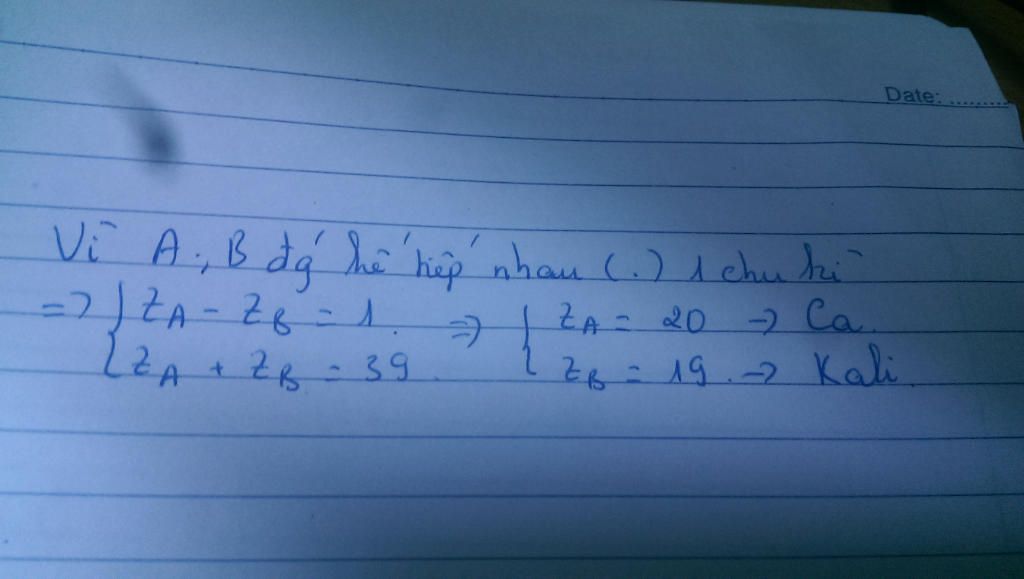 Date: ..........
Vì A, B đg´ kế tiếp nhau (.) 1 chu kì
=> { ZA - ZB = 1. => { ZA = 20 -> Ca.
ZA + ZB = 39. ZB = 19. -> Kali.